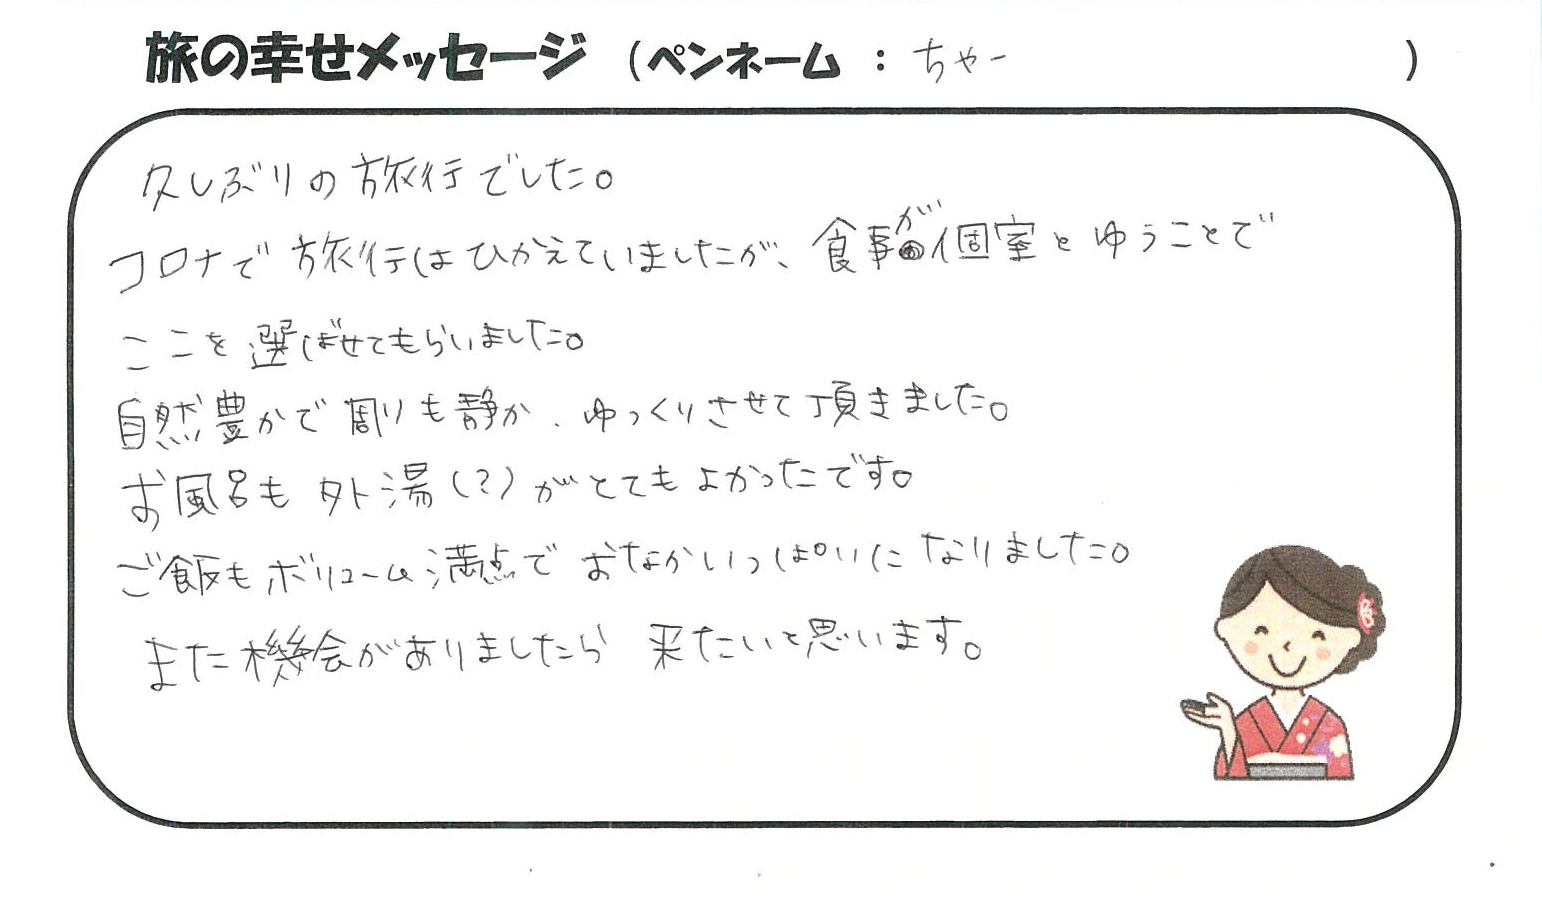 旅の幸せメッセージ （ペンネーム ： ちゃー ）
久しぶりの旅行でした。
コロナで旅行はひかえていましたが、食事が個室とゆうことで
ここを選ばせてもらいました。
自然豊かで周りも静か、ゆっくりさせて頂きました。
お風呂も外湯（？）がとてもよかったです。
ご飯もボリューム満点でおなかいっぱいになりました。
また機会がありましたら来たいと思います。